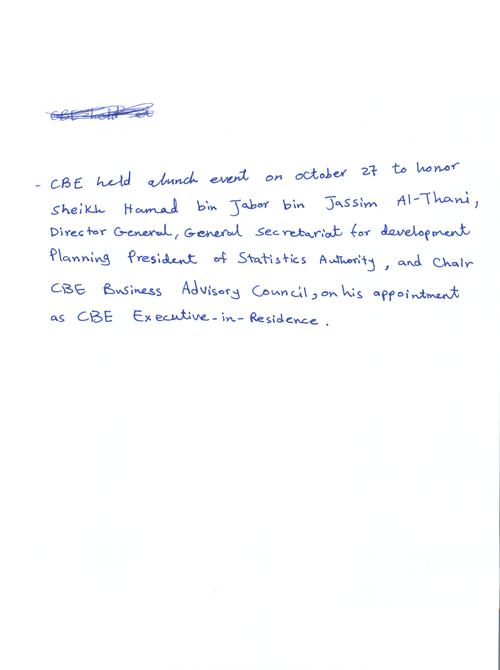 - CBE held alunch event on october 27 to honor
Sheikh Hamad bin Jabor bin Jassim Al-Thani,
Director General, General Secretariat for development
Planning President of Statistics Authority, and Chair
CBE Business Advisory Council, on his appointment
as CBE Executive-in-Residence.